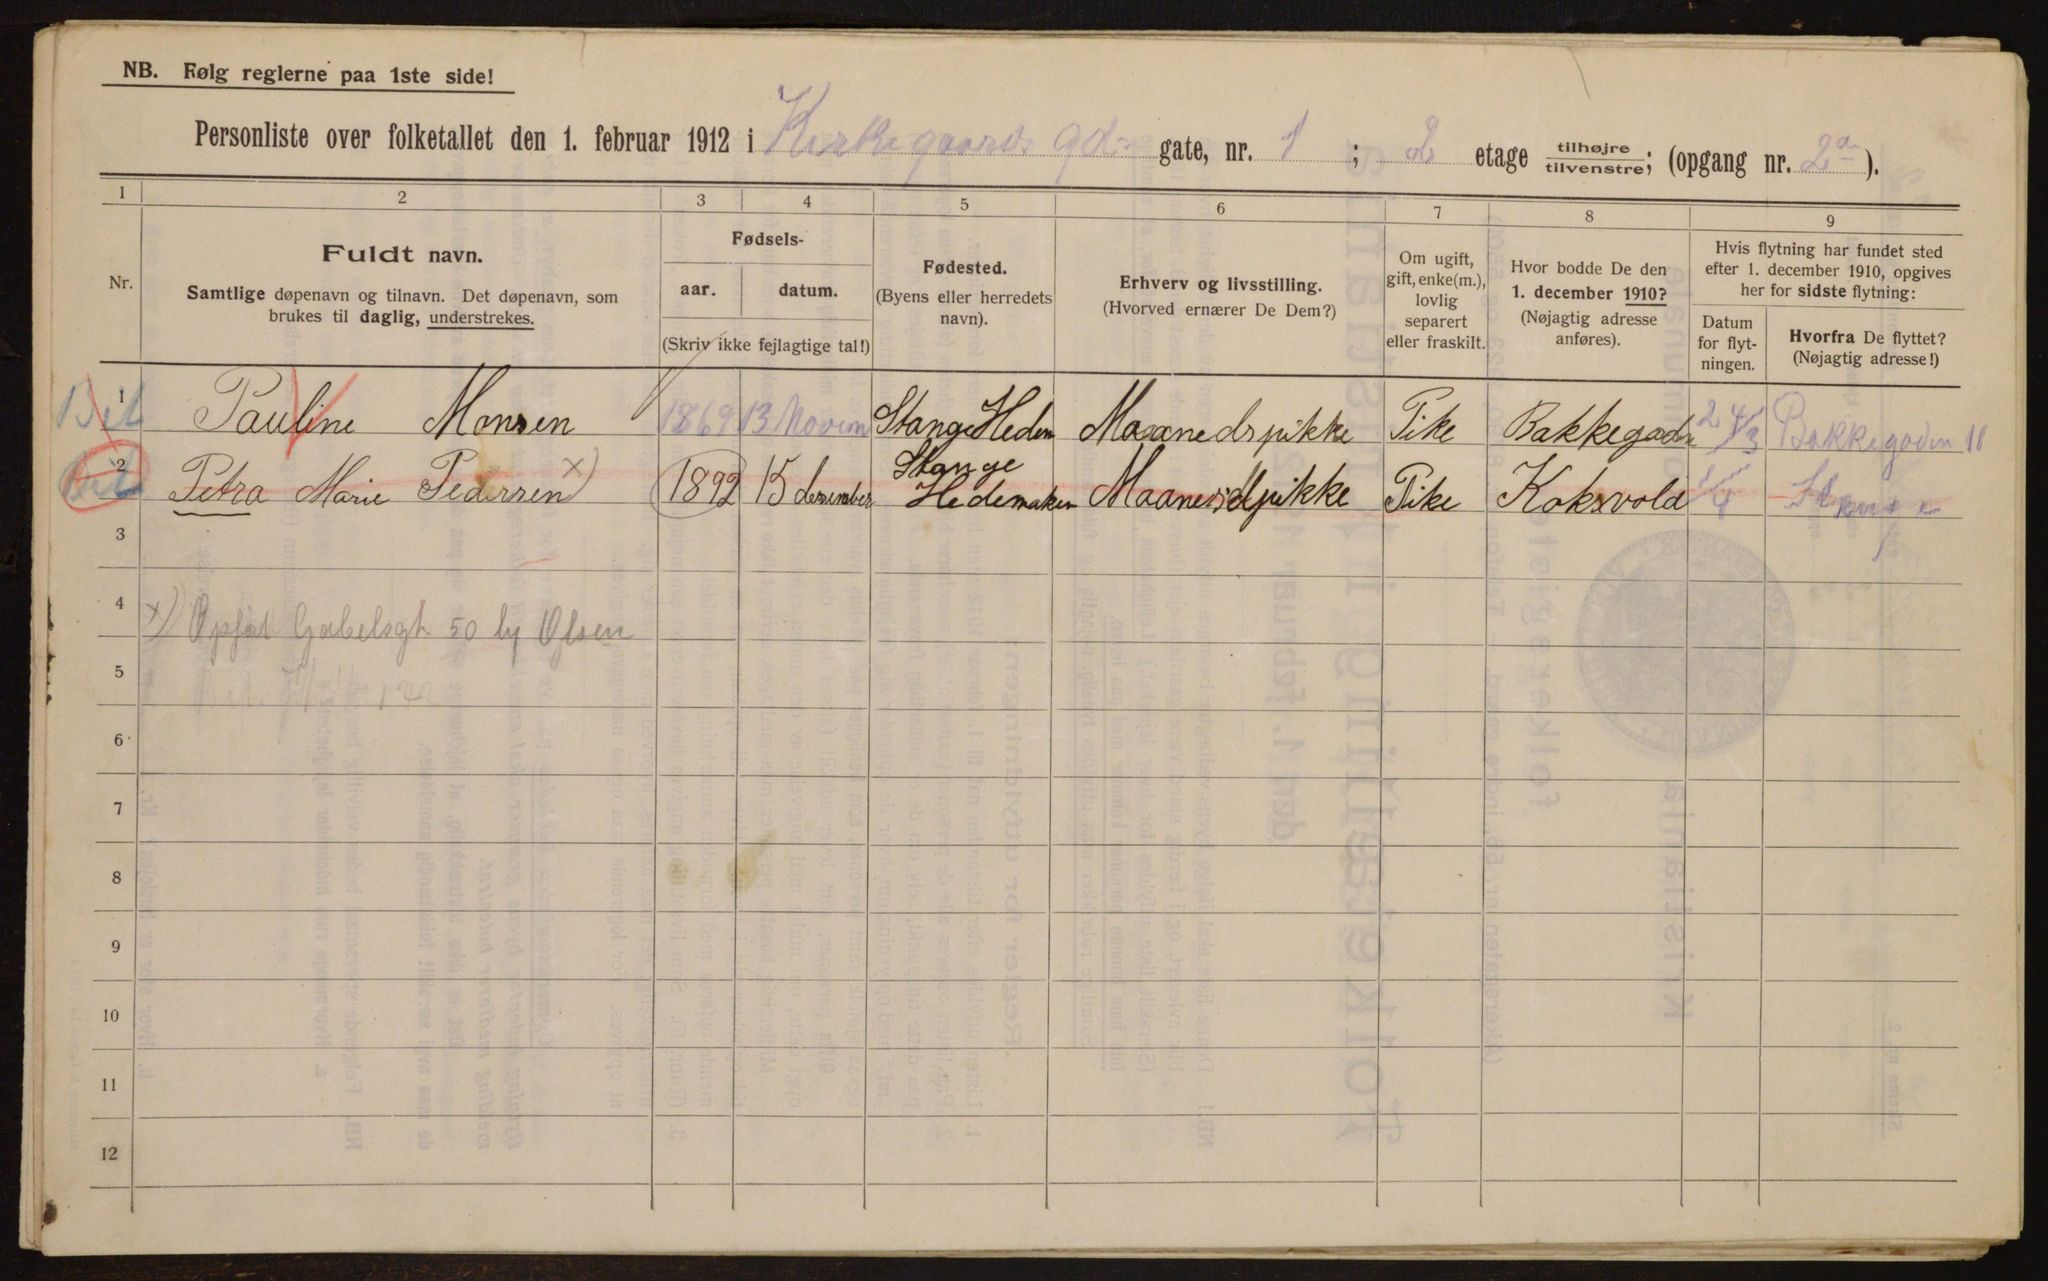 NB. Følg reglerne paa 1ste side!
Personliste over folketallet den 1. februar 1912 i Kirkegaards gdn gate, nr. 1 ; 2 etage tilhøjre / tilvenstre; (opgang nr. 2 a).
1 2 3 4 5 6 7 8 9
Nr.
Fuldt navn.
Samtlige døpenavn og tilnavn. Det døpenavn, som
brukes til daglig, understrekes.
Fødsels-
aar. datum.
(Skriv ikke fejlagtige tal!)
Fødested.
(Byens eller herredets
navn).
Erhverv og livsstilling.
(Hvorved ernærer De Dem?)
Om ugift,
gift, enke(m.),
lovlig
separert
eller fraskilt.
Hvor bodde De den
1. december 1910?
(Nøjagtig adresse
anføres).
Hvis flytning har fundet sted
efter 1. december 1910, opgives
her for sidste flytning:
Datum
for flyt-
ningen.
Hvorfra De flyttet?
(Nøjagtig adresse!)
1 Pauline Monsen 1869 13 Novem Stange Hedem Maanedspikke Pike Bakkegaden 2/3 Bakkegaden 11
2 Petra Marie Pedersen x) 1892 15 desember Stange Hedemaken Maanedspikke Pike Koksvold
3
4
x) Opført Gabelsgt 50 by Olsen
5
6
7
8
9
10
11
12